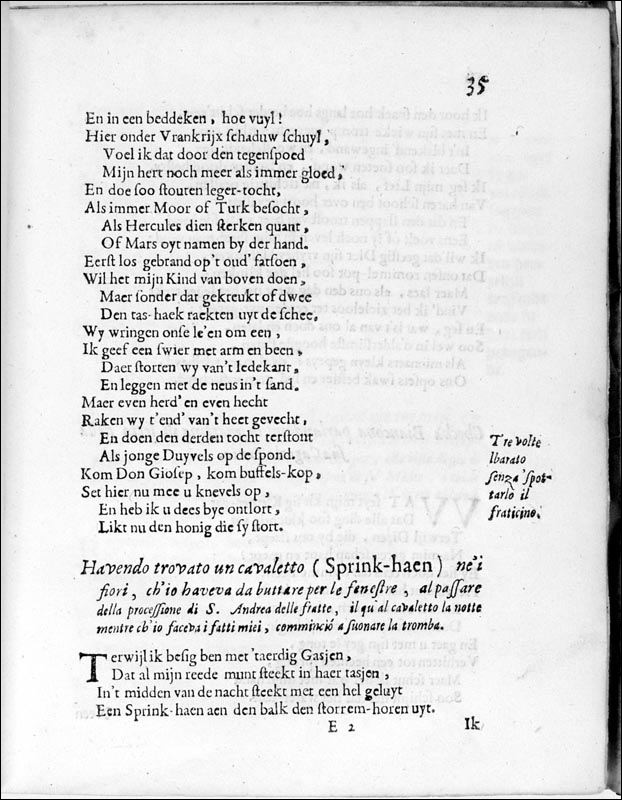 35
En in een beddeken, hoe vuyl!
Hier onder Vrankrijx schaduw schuyl,
Voel ik dat door den tegenspoed
Mijn hert noch meer als immer gloed,
En doe soo stouten leger-tocht,
Als immer Moor of Turk besocht,
Als Hercules dien sterken quant,
Of Mars oyt namen by der hand.
Eerst los gebrand op't oud' fatsoen,
Wil het mijn Kind van boven doen,
Maer sonder dat gekreukt of dwee
Den tas-haek raekten uyt de schee.
Wy wringen onse le'en om een,
Ik geef een swier met arm en been,
Daer storten wy van't ledekant,
En leggen met de neus in't sand.
Maer even herd' en even hecht
Raken wy t'end' van't heet gevecht,
En doen den derden tocht terstont
Als jonge Duyvels op de spond.
Kom Don Giosep, kom buffels-kop,
Set hier nu mee u knevels op,
En heb ik u dees bye ontlort,
Likt nu den honig die sy stort.
Tre volte
lbarato
senza 'spot-
tarlo il
fraticino.
Havendo trovato un cavaletto (Sprink-haen) ne'i
fiori, ch'io haveva da buttare per le fenestre, al passare
della processione di S. Andrea delle fratte, il qu al cavaletto la notte
mentre ch'io faceva i fatti miei, commincio a suonare la tromba.
Terwijl ik besig ben met 'taerdig Gasjen,
Dat al mijn reede munt steekt in haer tasjen,
In't midden van de nacht steekt met een hel geluyt
Een Sprink-haen aen den balk den storrem-horen uyt.
E 2
Ik